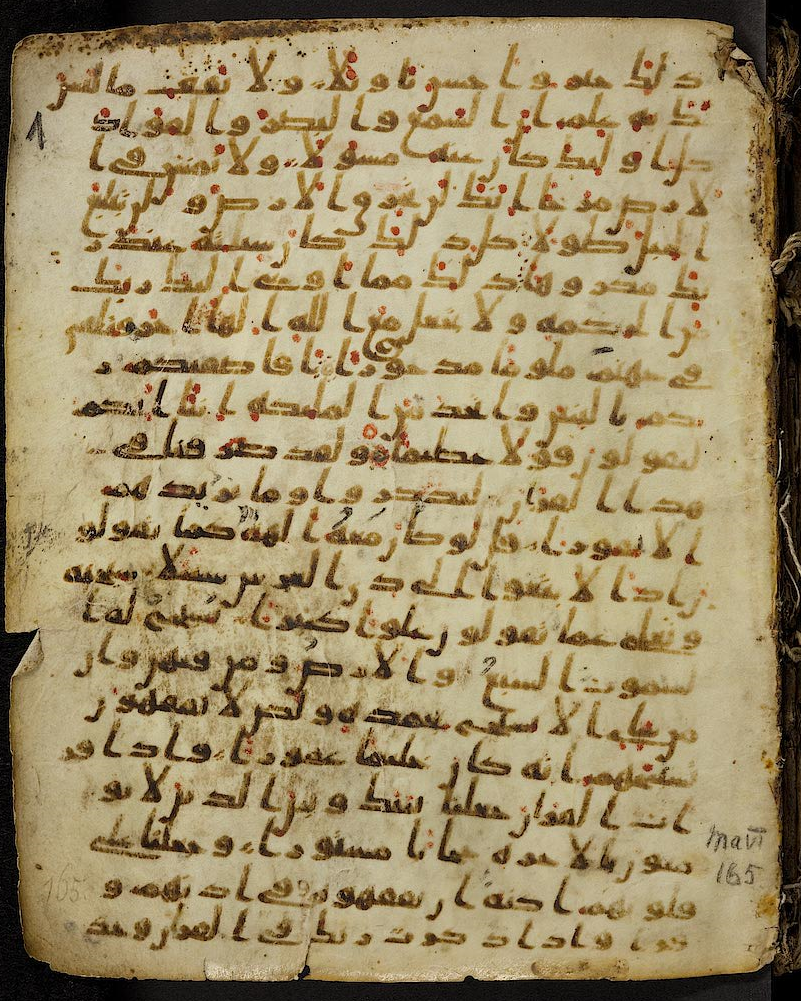 ذلك خير و احسن تاويلا و لا تقف ما ليس
لك به علم ان السمع و البصر و الفواد
كل اولئك كان عنه مسولا و لا تمش في ا
لارض مرحا انك لن تخرق الارض و لن تبلغ
الجبل طولا كل ذلك كان سيئه عند ر
بك مكروها ذلك مما اوحى اليك ربك
من الحكمه و لا تجعل مع الله الها اخر فتلقى
في جهنم ملوما مدحورا افاصفيكم ر
بكم بالبنين و اتخذ من الملئكه انثا انكم
لتقولون قولا عظيما و لقد صرفنا في
هذا القران ليذكروا و ما يزيدهم
الا نفورا قل لو كان معه الهه كما يقولو
ن اذا لابتغوا الى ذي العرش سبيلا سبحنه
و تعلى عما يقولون علوا كبيرا تسبح له ا
لسموت السبع و الارض و من فيهن و ان
من شي الا يسبح بحمده و لكن لا تفقهون
تسبيحهم انه كان حليما غفورا و اذا قر
ات القران جعلنا بينك و بين الذين لا يو
منون بالاخره حجابا مستورا و جعلنا على
قلوبهم اكنه ان يفقهوه و في اذنهم و
قرا و اذا ذكرت ربك في القران وحد
1
Ma VI
165
165